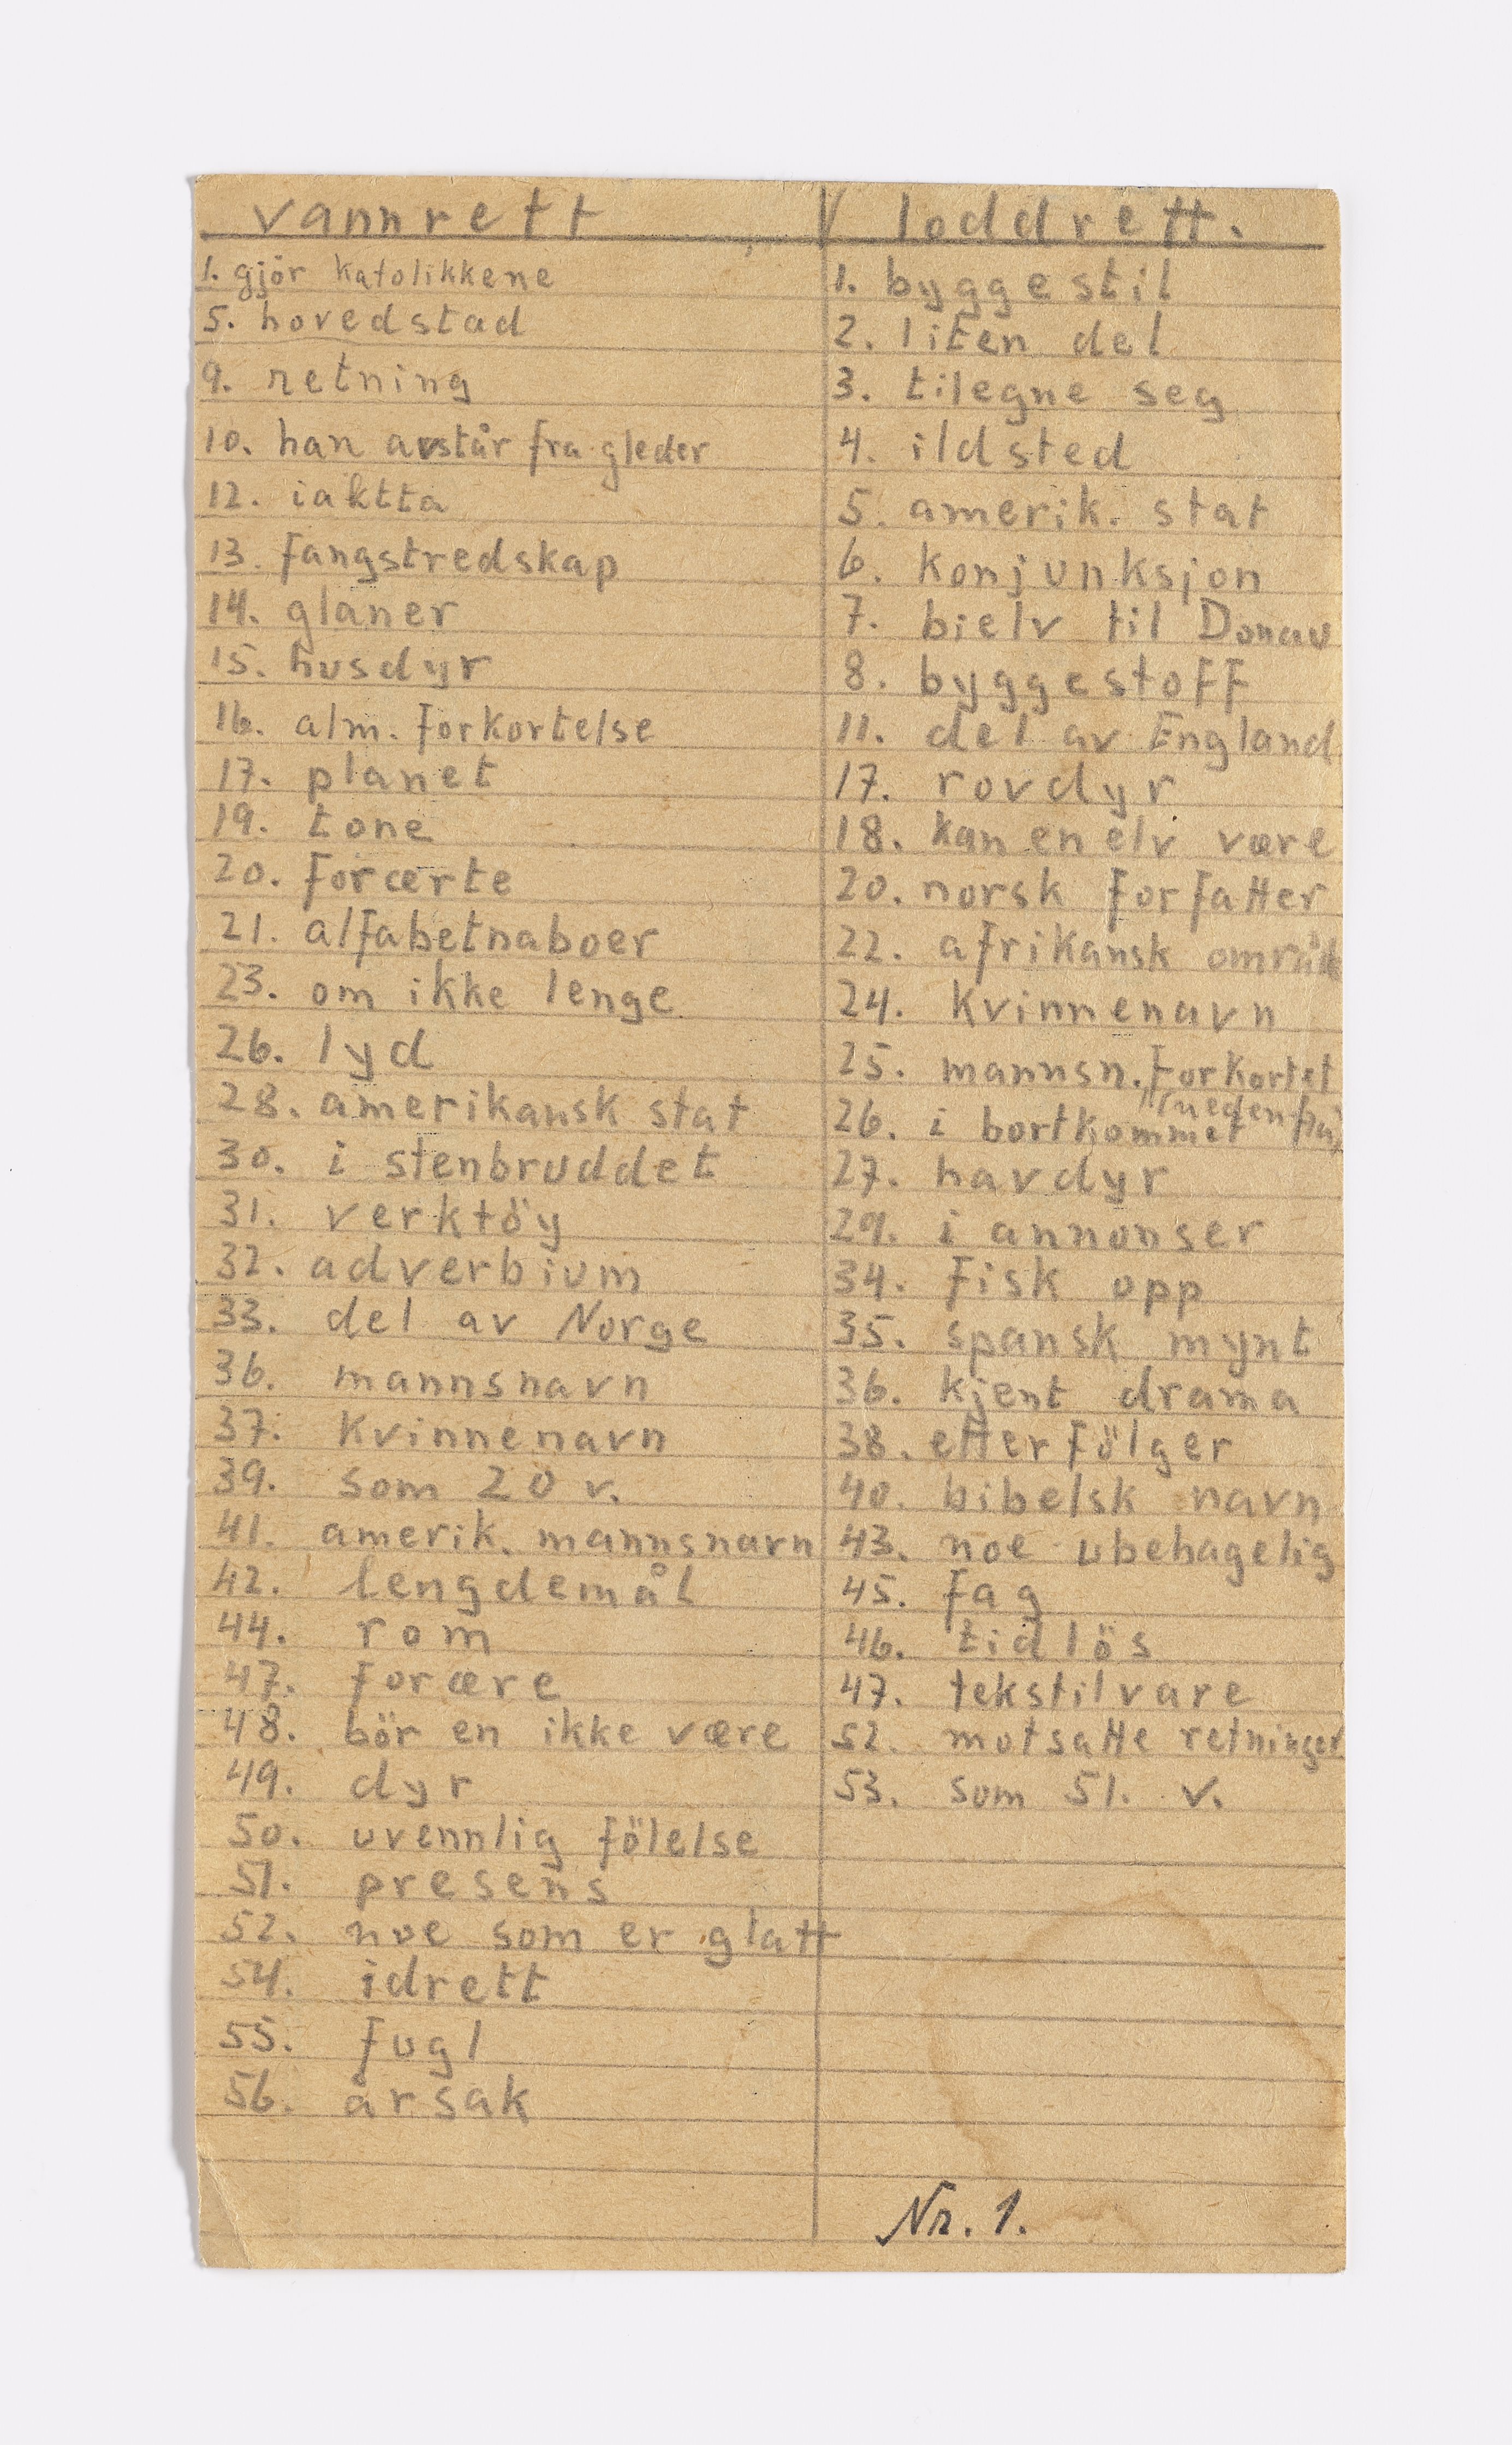 vannrett
1. gjör katolikkene
5. hovedstad
9. retning
10. han avstår fra gleder
12. iaktta
13. fangstredskap
14. glaner
15. husdyr
16. alm. forkortelse
17. planet
19. tone
20. forærte
21. alfabetnaboer
23. om ikke lenge
26. lyd
28. amerikansk stat
30. i stenbruddet
31. verktöy
32. adverbium
33. del av Norge
36. mannsnavn
37. kvinnenavn
39. som 20 v.
41. amerik. mannsnavn
42. lengdemål
44. rom
47. forære
48. bör en ikke være
49. dyr
50. uvennlig fölelse
51. presens
52. noe som er glatt
54. idrett
55. fugl
56. årsak
loddrett.
1. byggestil
2. liten del
3. tilegne seg
4. ildsted
5. amerik. stat
6. konjunksjon
7. bielv til Donau
8. byggestoff
11. del av England
17. rovdyr
18. kan en elv være
20. norsk forfatter
22. afrikansk område
24. kvinnenavn
25. mannsn. forkortet
(nedenfra)
26. i bortkommet
27. havdyr
29. i annonser
34. fisk opp
35. spansk mynt
36. kjent drama
38. etterfölger
40. bibelsk navn
43. noe ubehagelig
45. fag
46. tidlös
47. tekstilvare
52. motsatte retninger
53. som 51. v.
Nr. 1.